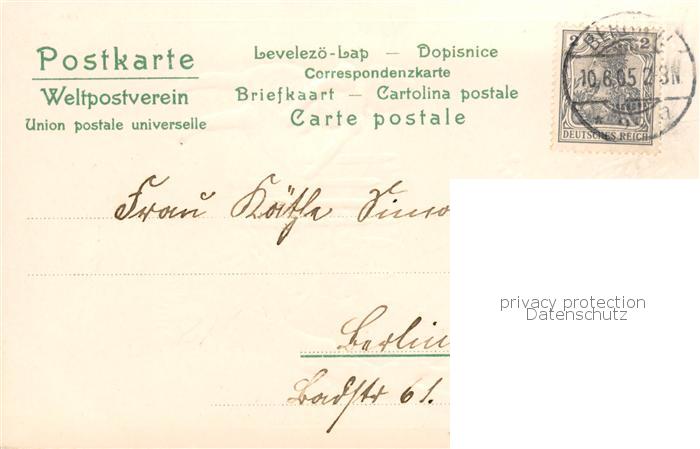 Postkarte
Weltpostverein
Union postale universelle
Levelező-Lap — Dopisnice
Correspondenzkarte
Briefkaart — Cartolina postale
Carte postale
2 2
10.6.05 2-3N
DEUTSCHES REICH
Frau Käthe Simo
privacy protection
Datenschutz
Berlin
Badstr 61.